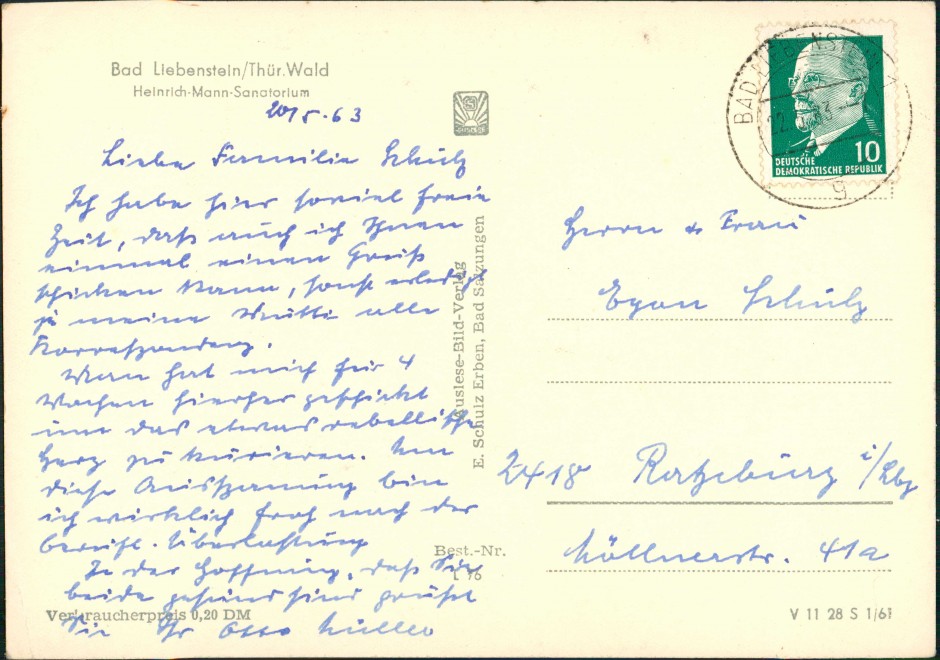 Bad Liebenstein/Thür.Wald
Heinrich-Mann-Sanatorium
20/5.63
Liebe Familie Schulz
Ich habe hier soviel freie
Zeit, daß auch ich Ihnen
einmal einen Gruß
schicken kann, sonst erledigt
ja meine Mutti alle
Korrespondenz.
Man hat mich für 4
Wochen hierher geschickt
um das etwas rebellische
Herz zu kurieren. Um
diese Ausspannung bin
ich wirklich froh nach der
berufl. Überlastung
In der Hoffnung, daß Sie
beide gesund sind grüßt
Sie Ihr Otto Müller
Verbraucherpreis 0,20 DM
Auslese-Bild-Verlag
E. Schulz Erben, Bad Salzungen
Best.-Nr.
L 76
BAD LIEBENSTEIN
22.5.63
g
10
DEUTSCHE
DEMOKRATISCHE REPUBLIK
Herrn & Frau
Egon Schulz
2418 Ratzeburg i/Lbg
Möllnerstr. 41a
V 11 28 S 1/61